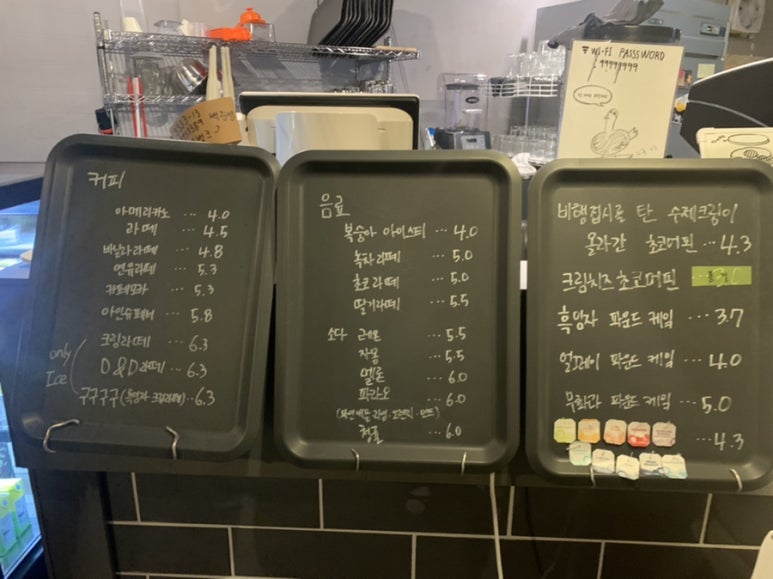 WI-FI PASSSWORD
: 99999999
커피
아메리카노 ... 4.0
라떼 ... 4.5
바닐라라떼 ... 4.8
연유라떼 ... 5.3
카페모카 ... 5.3
아인슈페너 ... 5.8
only
Ice
크림라떼 ... 6.3
D&D라떼 ... 6.3
구구구구(흑임자 크림라떼) .. 6.3
음료
복숭아 아이스티 ... 4.0
녹차라떼 ... 5.0
초코라떼 ... 5.0
딸기라떼 ... 5.5
소다 레몬 ... 5.5
자몽 ... 5.5
멜론 ... 6.0
파라오 ... 6.0
(파인애플·라임·오렌지·민트)
정글 ... 6.0
비행접시를 탄 수제크림이
올라간 초코머핀 ... 4.3
크림치즈 초코머핀 품절
흑임자 파운드 케잌 ... 3.7
얼그레이 파운드 케잌 ... 4.0
무화과 파운드 케잌 ... 5.0
... 4.3